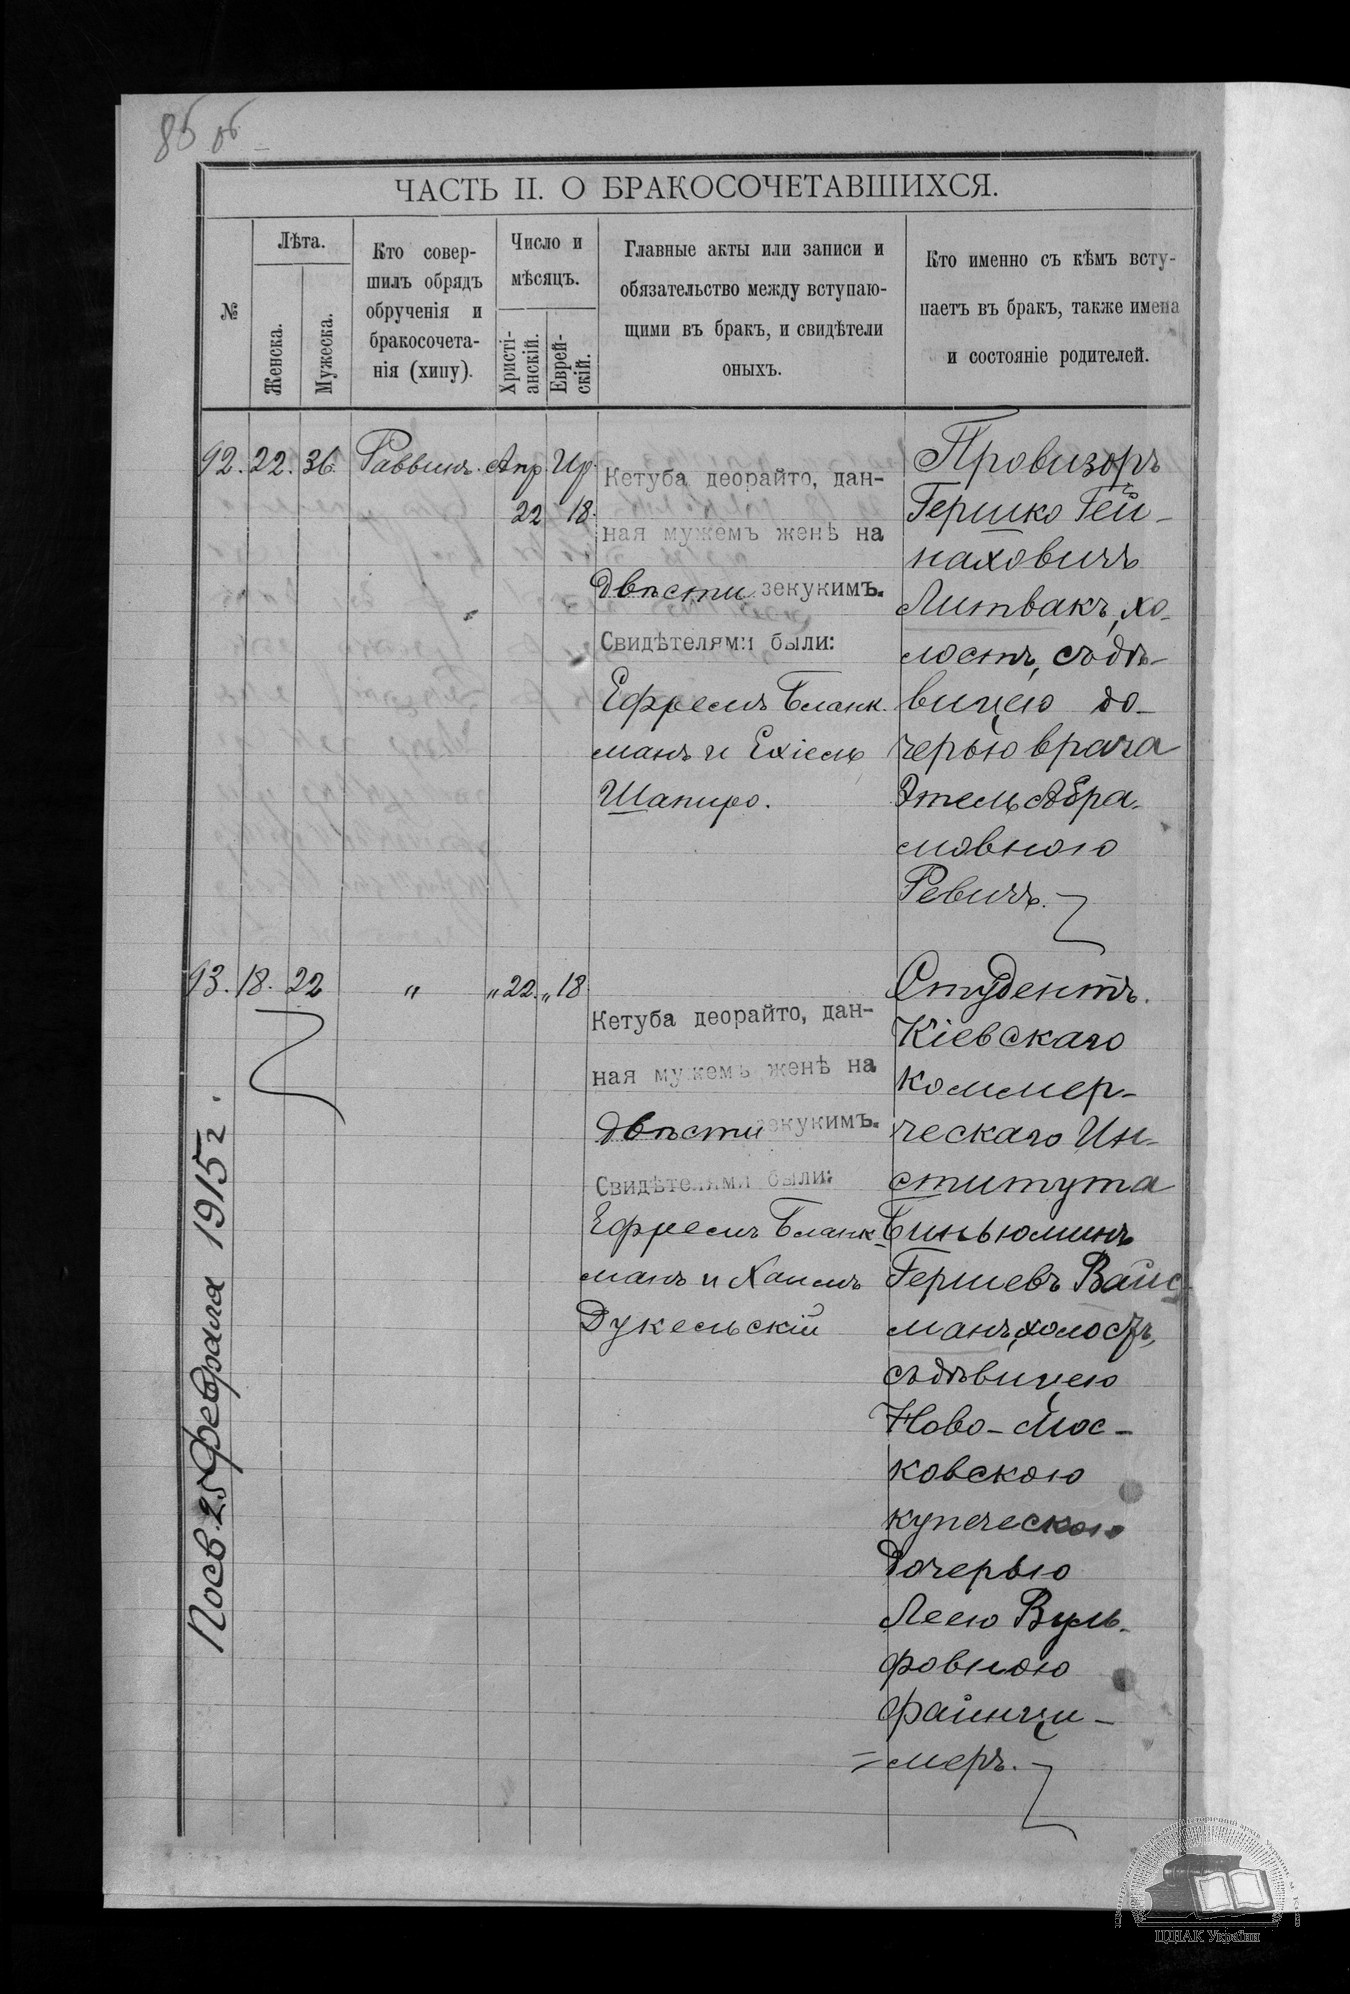 85 об
ЧАСТЬ II. О БРАКОСОЧЕТАВШИХСЯ.
№
Лѣта.
Женска.
Мужеска.
Кто совер-
шилъ обрядъ
обрученія и
бракосочета-
нія (хипу).
Число и
мѣсяцъ.
Христі-
анскій.
Еврей-
скій.
Главные акты или записи и
обязательство между вступаю-
щими въ бракъ, и свидѣтели
оныхъ.
Кто именно съ кѣмъ всту-
паетъ въ бракъ, также имена
и состояніе родителей.
92. 22. 36. Раввинъ. Апр. Ир.
22 18.
Кетуба деорайто, дан-
ная мужемъ женѣ на
двѣсти зекукимъ.
Свидѣтелями были:
Ефремъ Бланк-
манъ и Ехіель
Шапиро.
Провизоръ
Гершко Гей-
наховичъ
Литвакъ, хо-
лостъ, съ дѣ-
вицею до-
черью врача
Этель Абра-
мовною
Ревичъ.
93. 18. 22 " " 22. " 18
Кетуба деорайто, дан-
ная мужемъ женѣ на
двѣсти зекукимъ.
Свидѣтелями были:
Ефремъ Бланк-
манъ и Хаимъ
Дукельскій
Студентъ
Кіевскаго
коммер-
ческаго Ин-
ститута
Биньюминъ
Гершевъ Вайс-
манъ, холостъ,
съ дѣвицею
Ново-Мос-
ковскою
купеческою
дочерью
Леею Вуль-
фовною
Файнци-
=меръ.
25 февраля 1915 г.
ЦДІАК України